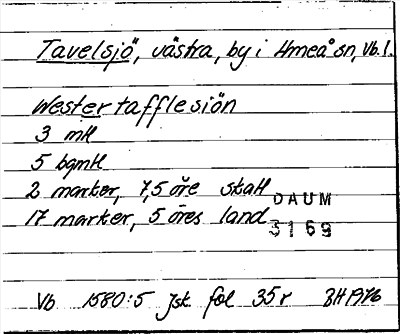 Tavelsjö, västra, by i Umeå sn, Vb. l.
Westertafflesiön
3 mtl
5 bgmtl
2 marker, 7,5 öre skatt
17 marker, 5 öres land
DAUM
3169
Vb 1580:5 Jsk fol 35r BH 1976